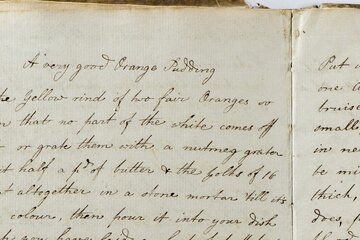 A very good Orange Pudding
the Yellow rind of two fair Oranges so
that no part of the white comes off
or grate them with a nutmeg grater
half a pd. of butter & the yolks of 16
altogether in a stone mortar till its
colour, then pour it into your dish
Put
one
truis
smalle
in ne
be mi
thick,
does,